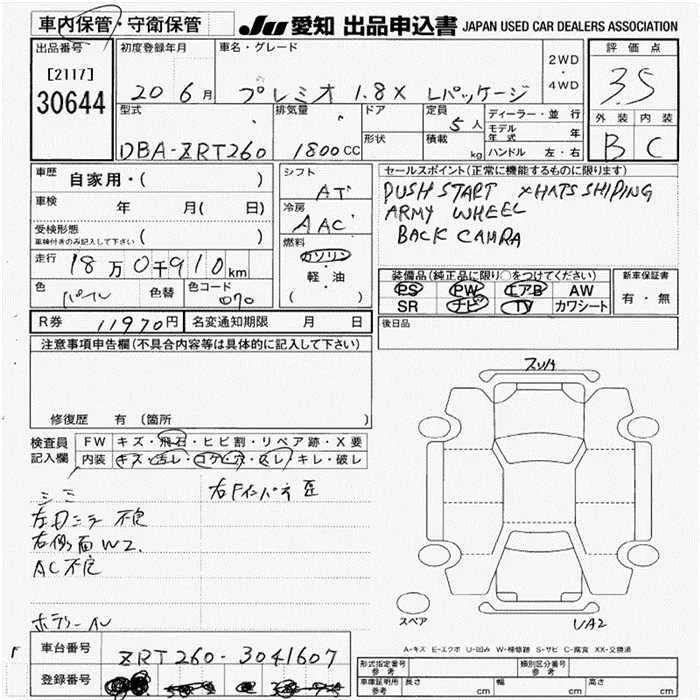 車内保管・守衛保管 JU 愛知 出品申込書 JAPAN USED CAR DEALERS ASSOCIATION
出品番号 初度登録年月 車名・グレード 2WD ・ 4WD 評価点
[2117] 30644 20 6月 プレミオ 1.8X Lパッケージ 3.5
型式 排気量 ドア 定員 5人 ディーラー・並行 外装 内装
形状 積載 kg モデル年式 年
DBA-ZRT260 1800CC ハンドル 左・右 B C
車歴 自家用・( ) シフト AT セールスポイント(正常に機能するものに限ります)
車検 年 月( 日) 冷房 AAC PUSH START XHATS SHIPING
受検形態 ARMY WHEEL
車検付きのみ記入して下さい 燃料 ガソリン BACK CAMRA
走行 18万0千910km 軽・油 装備品(純正品に限り○をつけてください) 新車保証書
色 パール 色替 色コード 070 ( ) PS PW エアB AW 有・無
SR ナビ TV カワシート
R券 11970円 名変通知期限 月 日 後日品
注意事項申告欄(不具合内容等は具体的に記入して下さい)
修復歴 有 (箇所
検査員記入欄 FW キズ・飛石・ヒビ割・リペア跡・X要
内装 キズ・汚レ・コゲ・穴・スレ・キレ・破レ
シミ 右Fインパネ
不良
右側面W2.
AC不良
UA2
スペア
A-キズ E-エクボ U-凹み W-補修跡 S-サビ C-腐食 XX-交換済
F 車台番号 ZRT260-3041607
登録番号
型式指定番号 参考 類別区分番号 参考
車庫証明用 参考 長さ cm 幅 cm 高さ cm